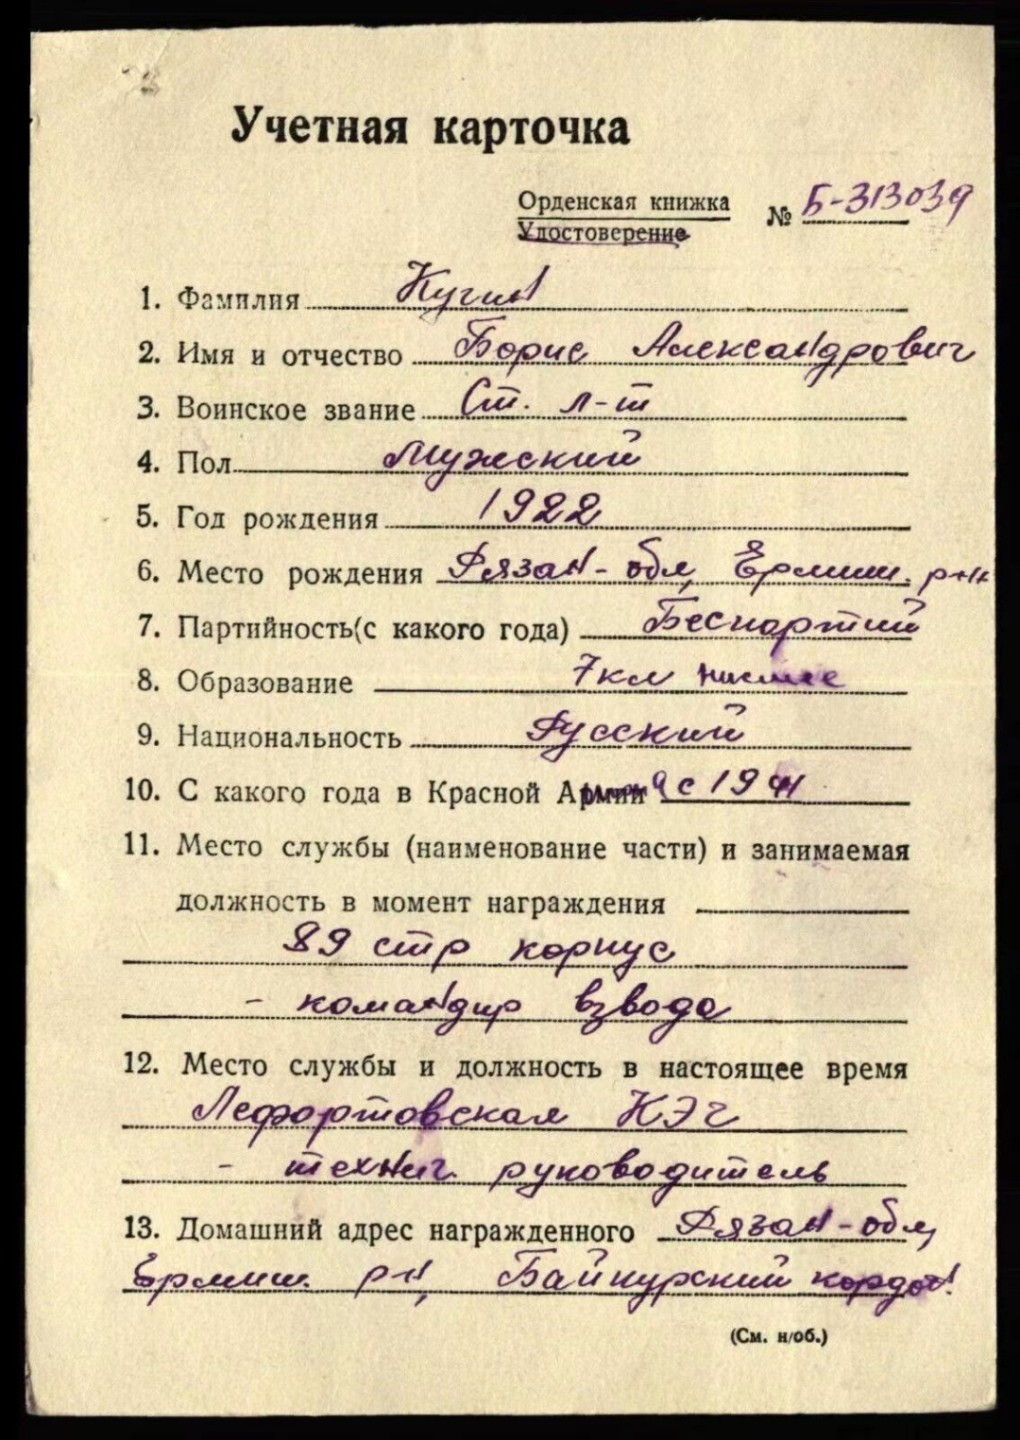 Учетная карточка
Орденская книжка
Удостоверение
№ Б-313039
1. Фамилия Кугин
2. Имя и отчество Борис Александрович
3. Воинское звание Ст. л-т
4. Пол Мужской
5. Год рождения 1922
6. Место рождения Рязан-обл, Ермиш. р-н
7. Партийность(с какого года) Беспартий
8. Образование 7кл низшее
9. Национальность Русский
10. С какого года в Красной Армии с 1941
11. Место службы (наименование части) и занимаемая
должность в момент награждения
89 стр корпус
- командир взвода
12. Место службы и должность в настоящее время
Лефортовская КЭЧ
- технич. руководитель
13. Домашний адрес награжденного Рязан-обл,
Ермиш. р-н, кордон
(См. н/об.)